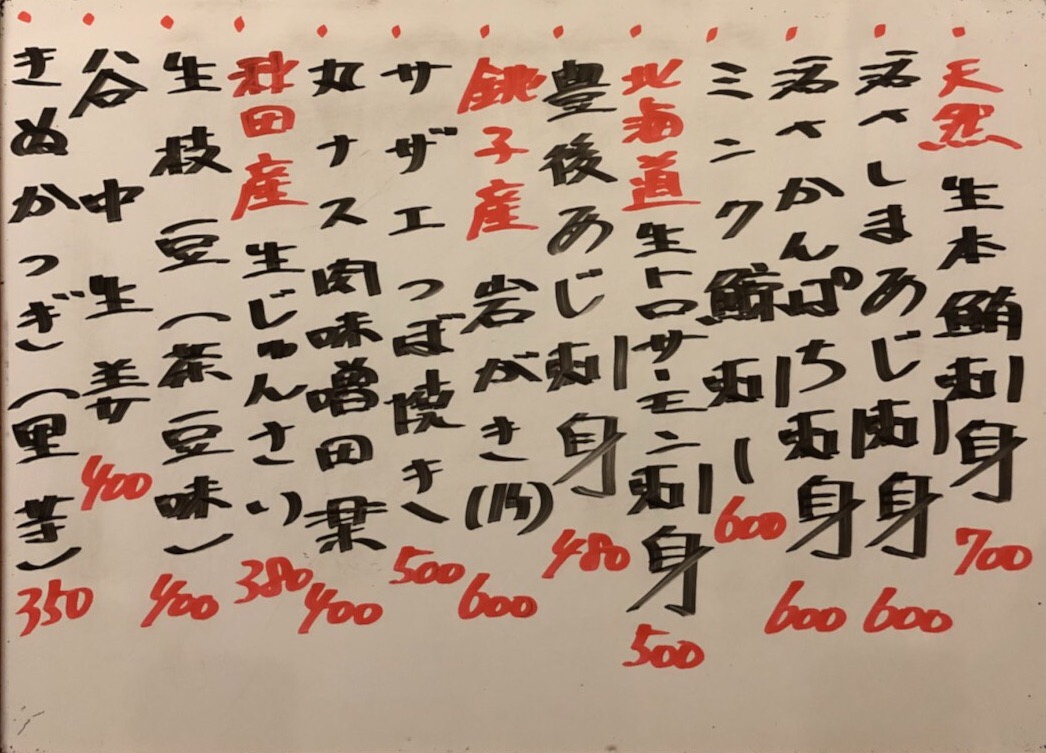 天然 生本鮪刺身 700
活〆しまあじ刺身 600
活〆かんぱち刺身 600
ミンク鯨刺し 600
北海道 生トロサーモン刺身 500
豊後あじ刺身 480
銚子産 岩がき(1ケ) 600
サザエつぼ焼き 500
丸ナス肉味噌田楽 400
秋田産 生じゅんさい 380
生枝豆(茶豆味) 400
谷中生姜 400
きぬかつぎ(里芋) 350